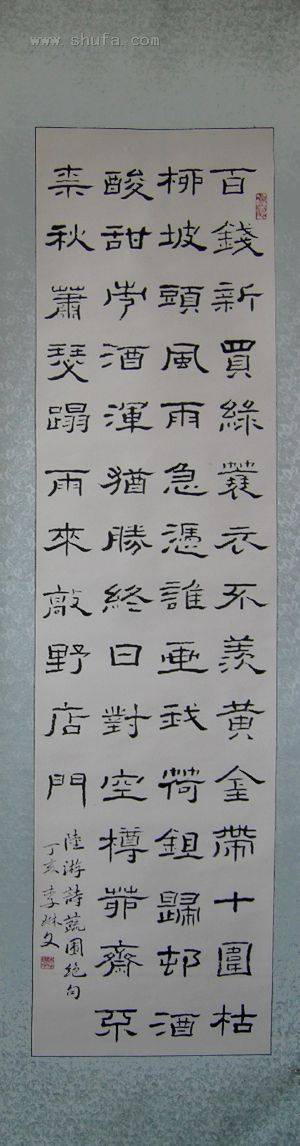 www.shufa.com
百錢新買綠蓑衣不羨黃金帶十圍枯
柳坡頭風雨急憑誰畫我荷鉏歸邨酒
酸甜市酒渾猶勝終日對空樽茆齋不
柰秋蕭瑟蹋雨來敲野店門
陸游詩蔬圃絕句
丁亥李